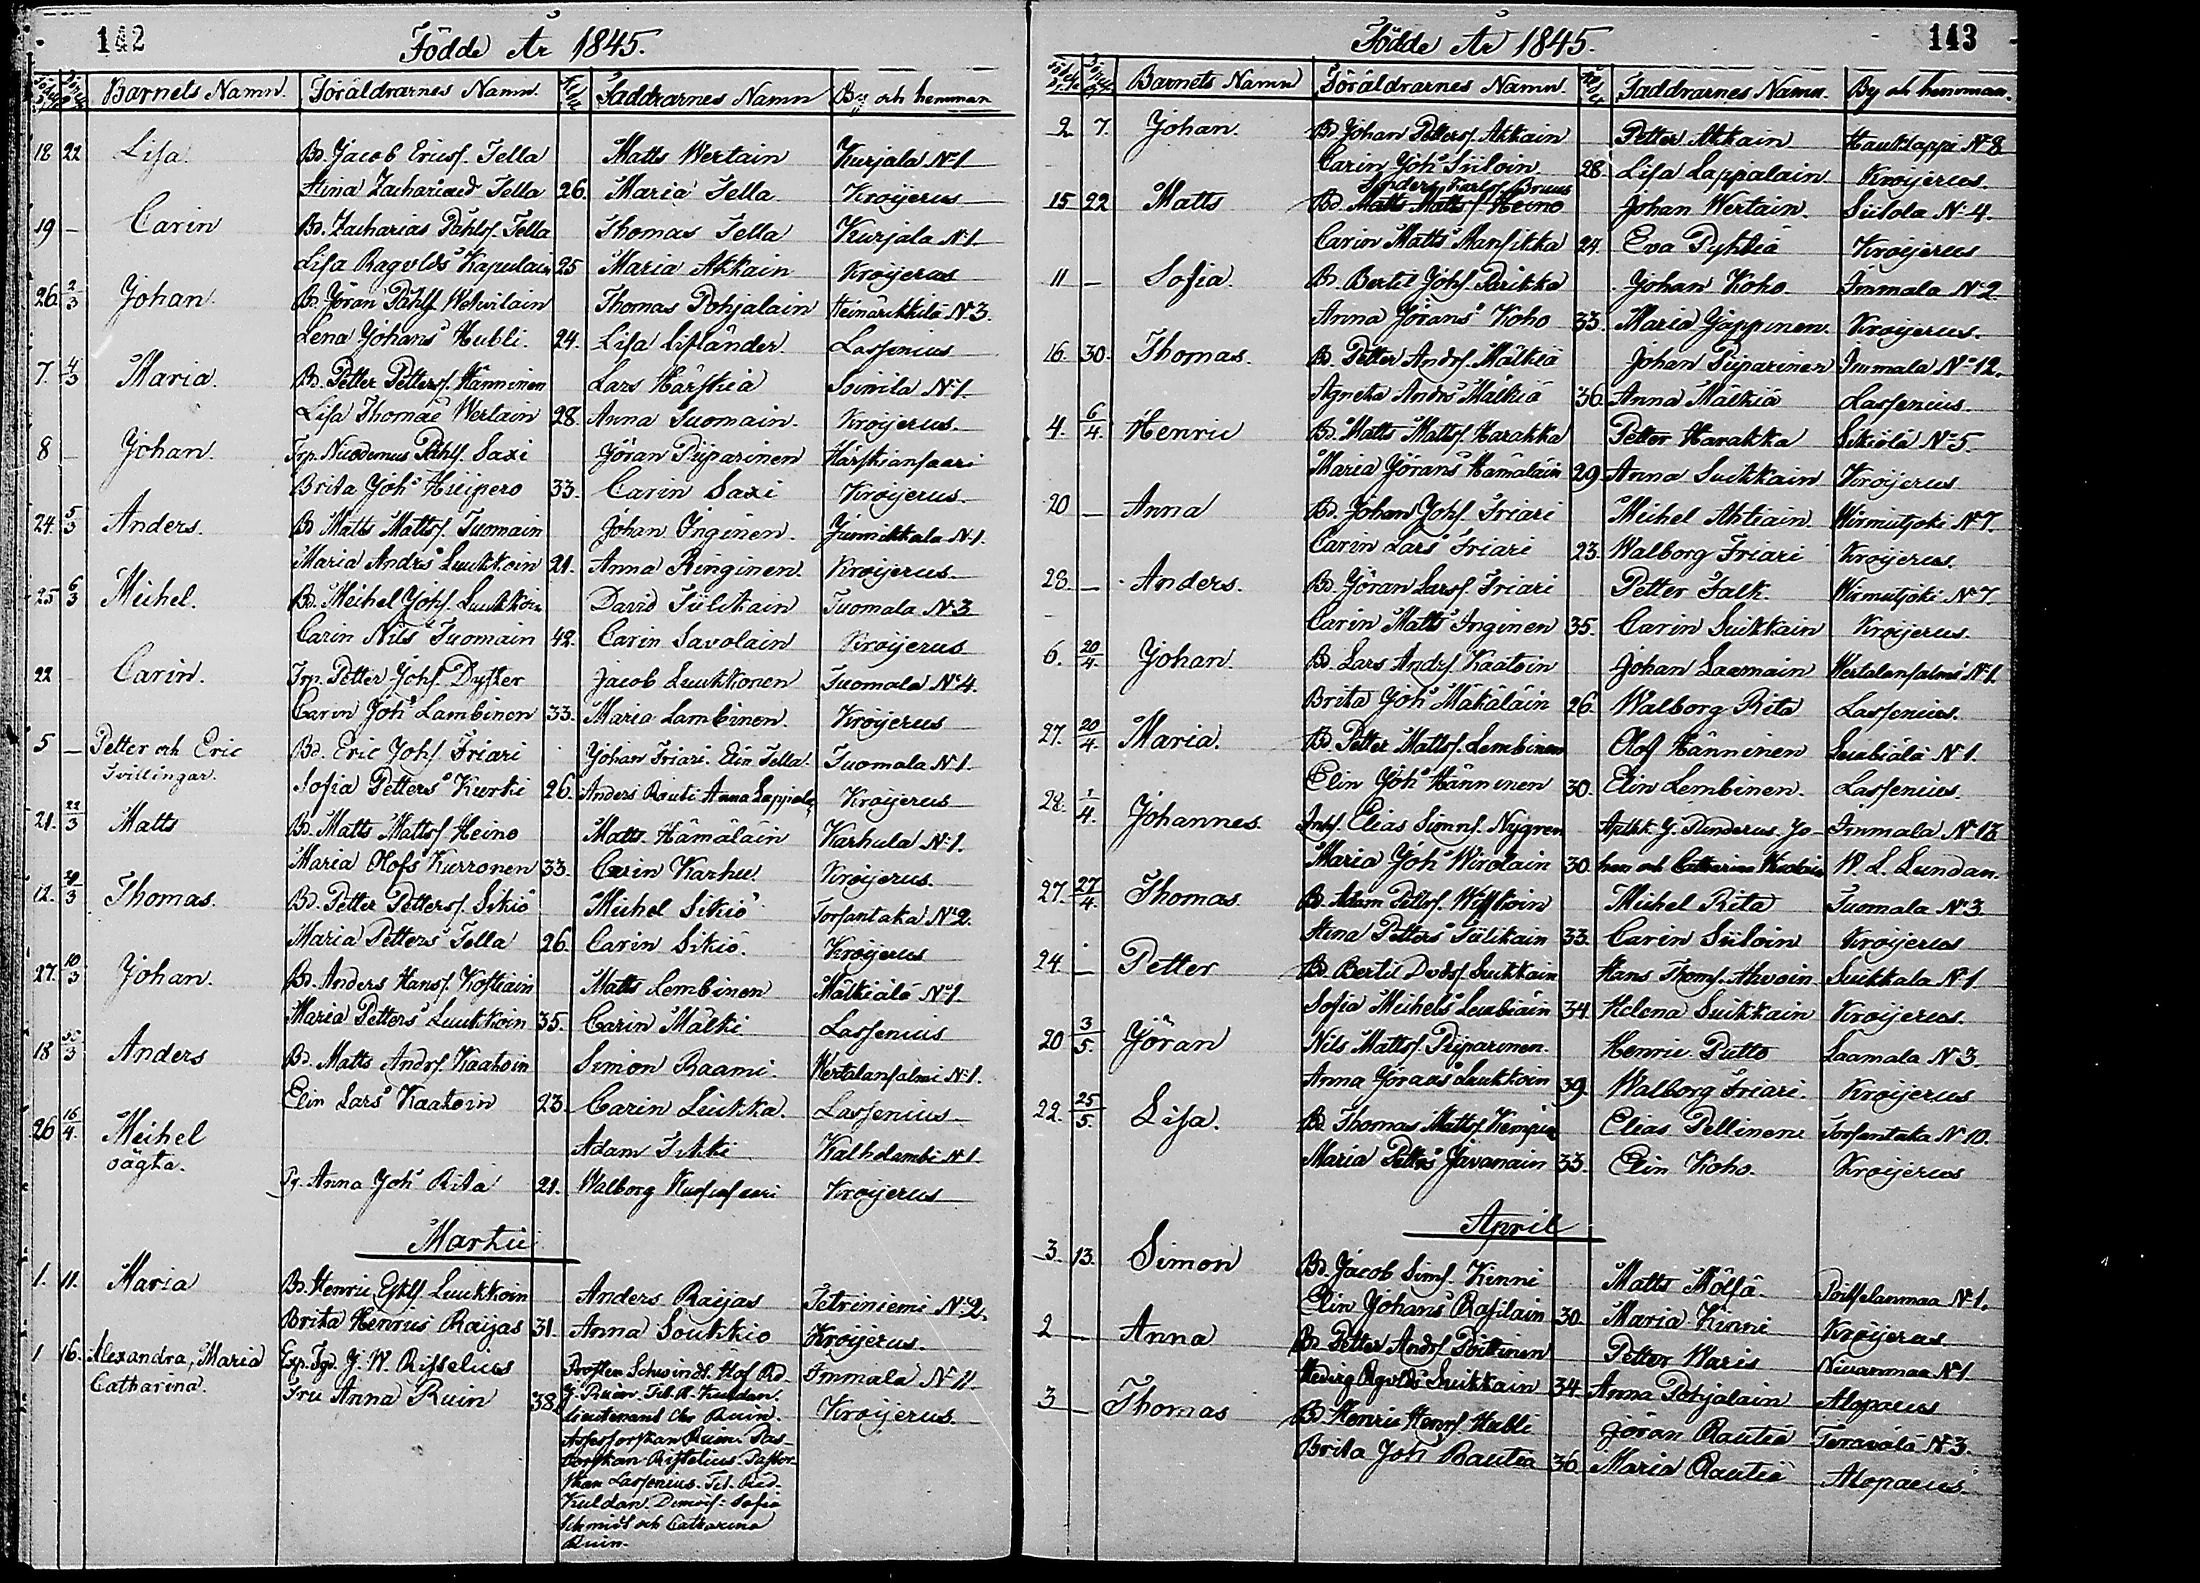 142
Födde År 1845.
Barnets Namn. Föräldrarnes Namn. Faddrarnes Namn By och hemman
18 22 Lisa Bd. Jacob Ericss. Tella Matts Wertain Kurjala No 1
Stina Zachariæd Tella 26. Maria Tella Kröijerus
19 – Carin Bd. Zacharias Påhlss. Tella Thomas Tella Kurjala No 1
Lisa Ragvlds Kapulain 25 Maria Akkain Kröijerus
26 2/3 Johan Bd. Jöran Påhlss. Wehvilain Thomas Pohjalain Heinärikkilä No 3.
Lena Johans Hubli. 24. Lisa Lifländer Lassenius
7. 4/3 Maria. Bd. Petter Petterss. Hänninen Lars Härskiä Soinila No 1
Lisa Thomæ Wertain 28. Anna Tuomain. Kröijerus
8 – Johan. Trp. Nicodemus Påhls. Saxi Jöran Piiparinen Härskiansaari
Brita Johs Hiipero 33. Carin Saxi Kröijerus
24. 5/3 Anders. Bd Matts Mattss. Tuomain Johan Inginen. Junnikkala No 1.
Maria Andrs Luukkoin 21. Anna Ringinen. Kröijerus
25 6/3 Michel. Bd. Michel Johs. Luukkoin David Tiilikain Tuomala No 3
Carin Nils Tuomain 42. Carin Savolain Kröijerus
22 – Carin. Trp. Petter Johs. Dyster Jacob Luukkonen Tuomala No 4.
Carin Johs Lambinen 33. Maria Lambinen. Kröijerus
5 – Petter och Eric Bd. Eric Johs. Friari Johan Friari. Elin Tella. Tuomala No 1.
Tvillingar. Sofia Petters Kurki 26. Anders Routi Anna Lappala Kröijerus
21. 22/3 Matts Bd. Matts Mattss. Heino Matts Hämäläin Karhula No 1.
Maria Olofs Kurronen 33. Carin Karhu Kröijerus.
12. 24/3 Thomas. Bd. Petter Petterss. Sikiö Michel Sikiö Torsantaka No 2.
Maria Petters Tella 26. Carin Sikiö. Kröijerus
27. 10/3 Johan. Bd. Anders Hanss. Kostiain Matts Lembinen Mälkiälä No 1.
Maria Petters Luukkoin 35. Carin Mälki Lassenius
18 /3 Anders Bd. Matts Andrs. Kaatoin Simon Raami. Wertalansalmi No 1.
Elin Lars Kaatoin 23. Carin Liukka. Lassenius
26 16/4 Michel Adam Ikki Kalholambi No 1
oägta.
Pg. Anna Johs Rita 21. Walborg Kuususaari Kröijerus
Martii
1. 11. Maria Bd. Henric Luukkoin Anders Raijas Tetriniemi No 2.
Brita Henrics Raijas 31. Anna Soukkio Kröijerus.
1 16. Alexandra, Maria J. W. Risselius Prosten Schwindt. Hof Rd. Immala No 11
Catharina. Fru Anna Ruin 38. J. Ruin. Tit. R. Kuldan. Kröijerus
Lieutenant Ruin.
Assessorskan Ruin. Pas-
torskan Ristelius. Pastor-
skan Lassenius. Tit. Råd.
Kuldan. Demois: Sofia
Schmidt och Catharina
Ruin.
143
Födde År 1845.
Barnets Namn Föräldrarnes Namn. Faddrarnes Namn. By och hemman.
2 7. Johan. Bd. Johan Petterss. Akkain Petter Akkain Haucklappi No 8
Carin Johs Siiloin 28. Lisa Lappalain Kröijerus.
Anders Karlss. Bruus
15 22 Matts Bd. Matts Mattss. Heino Johan Wertain. Siilola No 4.
Carin Matts Kansikka 24. Eva Pyhtiä Kröijerus
11 – Sofia Bd. Bertil Johs. Pirikka Johan Koho Immala No 2
Anna Jörans Koho 33. Maria Jäppinen. Kröijerus.
16. 30. Thomas. Bd. Petter Andrs. Mälkiä Johan Piiparinen Immala No 12.
Agneta Andrs Mälkiä 36. Anna Mälkiä Lassenius.
4. 6/4. Henric Bd. Matts Mattss. Harakka Petter Harakka Sikiölä No 5.
Maria Jörans Hämäläin 29. Anna Suikkain Kröijerus
20 – Anna Bd. Johan Johs. Friari Michel Ahtiain Wirmutjoki No 7.
Carin Lars Friari 23. Walborg Friari Kröijerus.
28 – Anders. Bd. Jöran Larss. Friari Petter Falk. Wirmutjoki No 7.
Carin Matts Inginen 35. Carin Suikkain Kröijerus
6. 20/4 Johan. Bd. Lars Andrs. Kaatoin Johan Laamain Wertalansalmi No 1.
Brita Johs Mäkäläin 26. Walborg Rita Lassenius.
27. 20/4. Maria. Bd. Petter Mattss. Lembinen Olof Hänninen Leubiälä No 1.
Elin Johs Hänninen 30. Elin Lembinen. Lassenius.
28. /4. Johannes. Elias Simns. Nygren J. Dunderus. Jo- Immala No 13
Maria Johs Wirolain 30. han och Catharina Wirolain W. L. Lundan.
27. 27/4. Thomas Bd. Adam Petters. Miffkoin Michel Rita Tuomala No 3
Stina Petters Tiilikain 33. Carin Siiloin Kröijerus
24. – Petter Bd. Bertil Dvds. Suikkain Hans Thoms. Ahvoin Suikkala No 1
Sofia Michels Leubiäin 34. Helena Suikkain Kröijerus.
20 3/5. Jöran Nils Mattss. Piiparinen. Henric Putto Laamala No 3.
Anna Jöraas Luukkoin 39. Walborg Friari. Kröijerus
22. 25/5. Lisa. Bd. Thomas Mattss. Kempia Elias Pellinen. Torsantaka No 10.
Maria Petters Javanain 33. Elin Koho. Kröijerus
April
3. 13. Simon Bd. Jacob Sims. Kinni Matts Mölsä. Poitsilanmaa No 1.
Elin Johans Rasilain 30. Maria Kinni Kröijerus
2 – Anna Bd. Petter Andrs. Pöttinen Petter Waris Nivanmaa No 1
Hedvig Rgvlds Suikkain 34. Anna Pohjalain Alopaeus
3 – Thomas Bd. Henric Henrs. Hubli Jöran Rautiä Teravälä No 3.
Brita Johs Rautia 36. Maria Rautiä Alopaeus